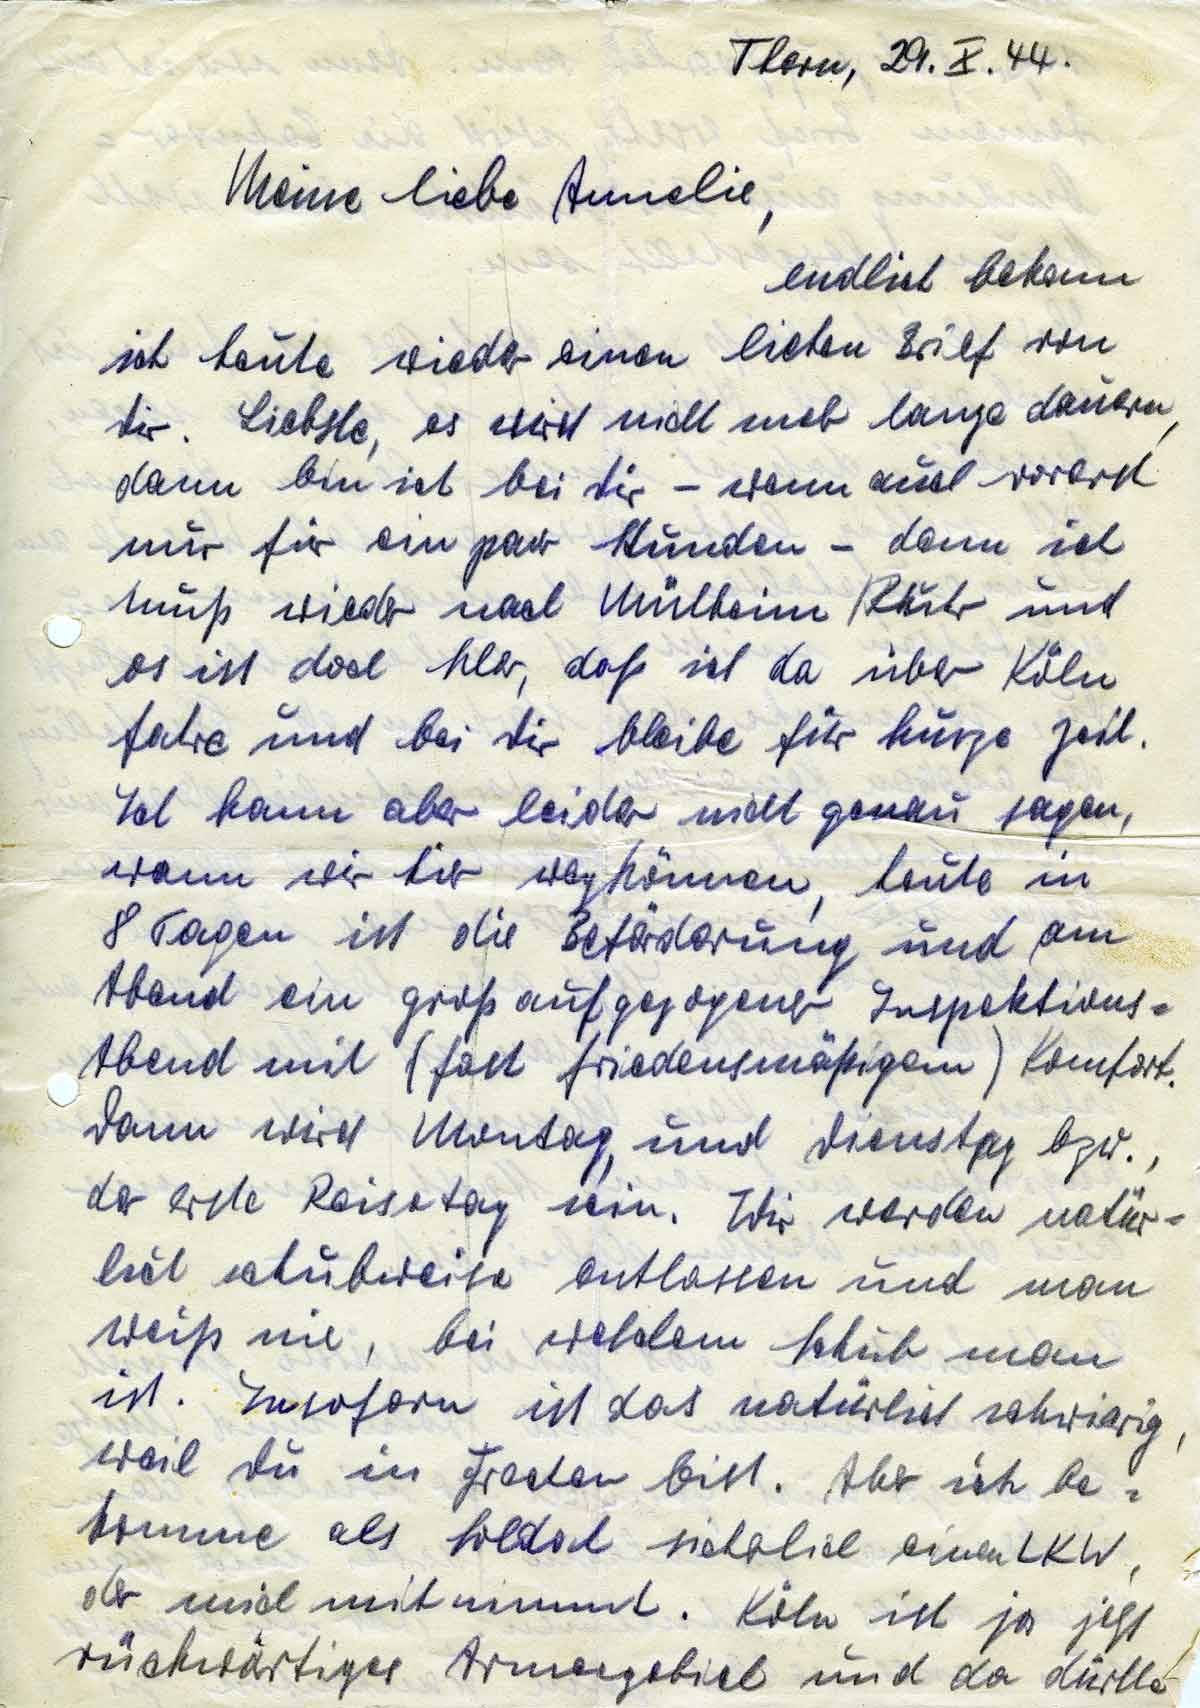 Thorn, 29. X. 44.
Meine liebe Annelie,
endlich bekam
ich heute wieder einen lieben Brief von
dir. Liebste, es wird nicht mehr lange dauern,
dann bin ich bei dir – wenn auch vorerst
nur für ein paar Stunden – denn ich
muß wieder nach Mülheim/Ruhr und
es ist doch klar, daß ich da über Köln
fahre und bei dir bleibe für kurze Zeit.
Ich kann aber leider nicht genau sagen,
wann wir hier wegkönnen, heute in
8 Tagen ist die Beförderung und am
Abend ein groß aufgezogener Inspektions-
Abend mit (fast friedensmäßigem) Komfort.
Dann wird Montag, und Dienstag bzw.,
der erste Reisetag sein. Wir werden natür-
lich schubweise entlassen und man
weiß nie, bei welchem Schub man
ist. Insofern ist das natürlich schwierig,
weil du in Frechen bist. Aber ich be-
komme als Soldat sicherlich einen LKW,
der mich mitnimmt. Köln ist ja jetzt
rückwärtiges Armeegebiet und da dürfte